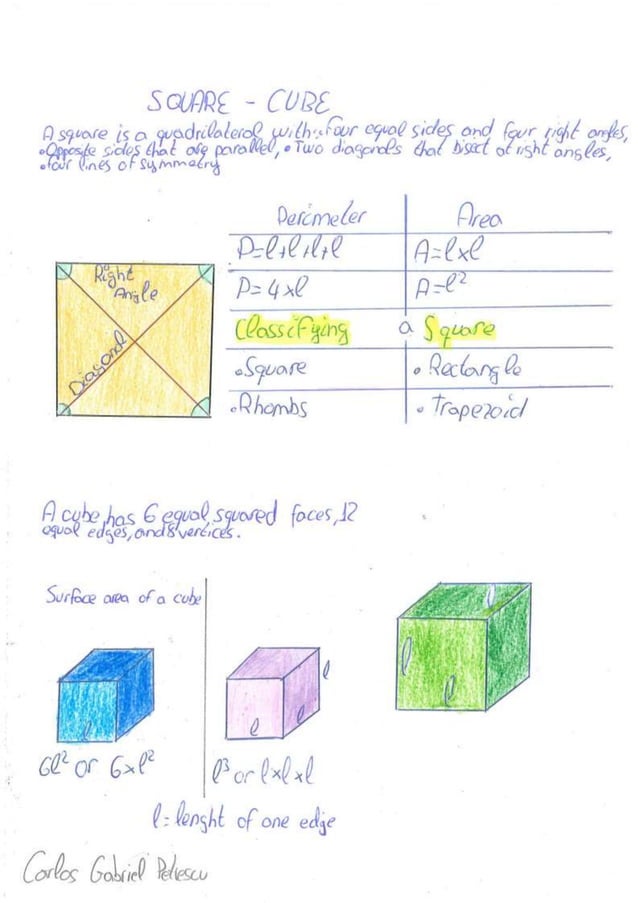 SQUARE - CUBE
A square is a quadrilateral with: four equal sides and four right angles,
•Opposite sides that are parallel, •Two diagonals that bisect at right angles,
•four lines of symmetry
Perimeter Area
P=l+l+l+l A=l×l
P=4×l A=l²
Classifying a Square
•Square •Rectangle
•Rhombs •Trapezoid
Right
Angle
Diagonal
A cube has 6 equal squared faces, 12
equal edges, and 8 vertices.
Surface area of a cube
l
l
l
l
l
l
l
6l² or 6×l² l³ or l×l×l
l=lenght of one edge
Carlos Gabriel